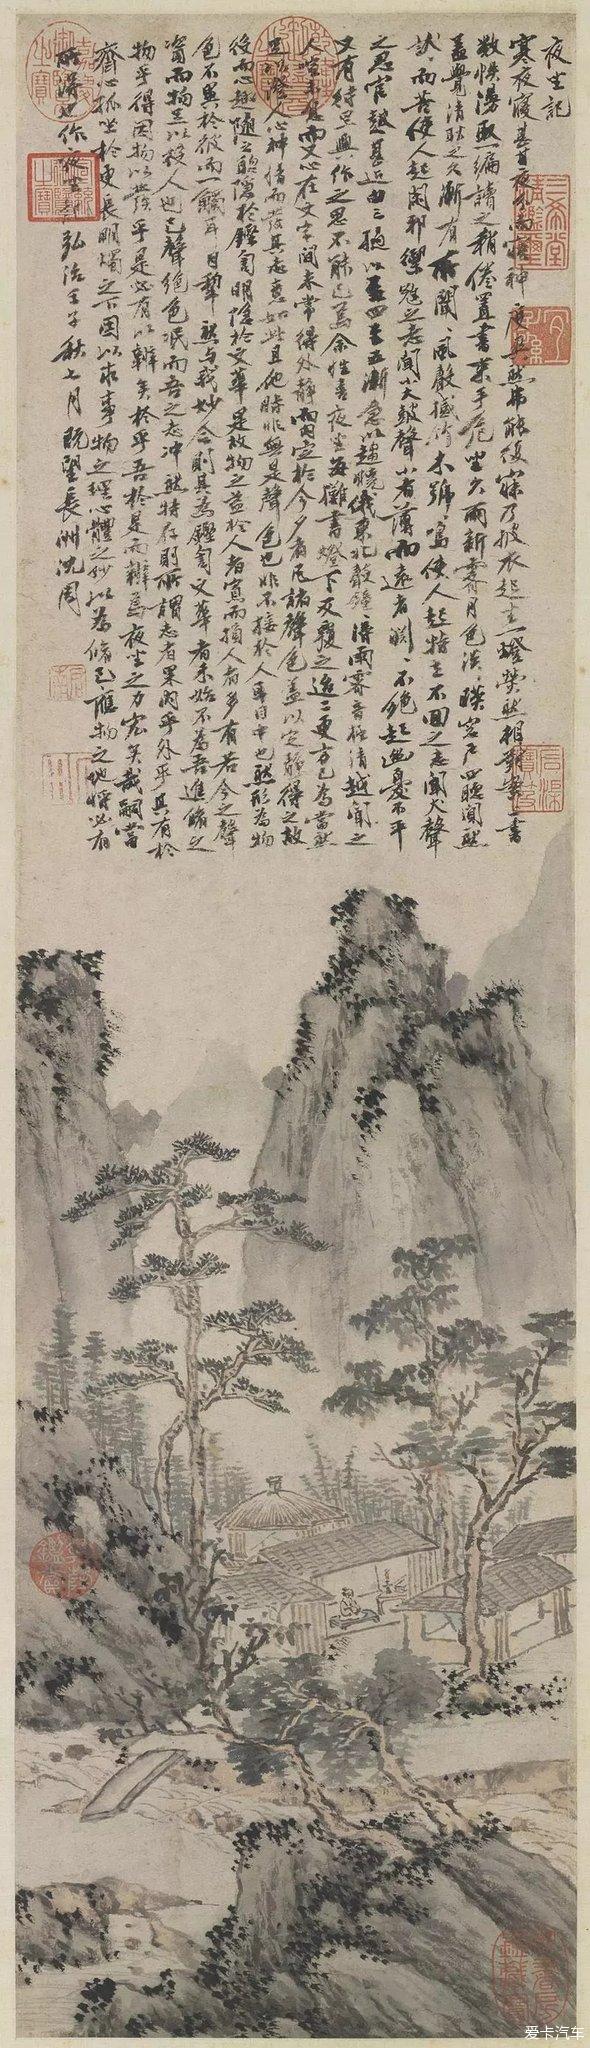 夜坐記
寒夜寢甚甘夜分而寤神度爽然弗能復寐乃披衣起坐一燈熒然相對案上書
數帙漫取一編讀之稍倦置書束手危坐久雨新霽月色淡淡映窗戶四聽闃然
蓋覺清耿之久漸有所聞聞風聲撼竹木號號鳴使人起特立不回之志聞犬聲
狺狺而苦使人起閑邪禦寇之志聞小大鼓聲小者薄而遠者淵淵不絕起幽憂不平
之思官鼓甚近由三撾以至四至五漸急以趨曉俄東北聲鐘鐘得雨霽音極清越聞之
又有待旦興作之思不能已焉余性喜夜坐每攤書燈下反覆之迨二更方已為當然
人喧未息而又心在文字間未嘗得外靜而內定於今夕者凡諸聲色蓋以定靜得之故
足以澄人心神情而發其志意如此且他時非無是聲色也非不接於人耳目中也然形為物
役而心趣隨之聰隱於鏗訇明隱於文華是故物之益於人者寡而損人者多有若今之聲
色不異於彼而一觸耳目犁然與我妙合則其為鏗訇文華者未始不為吾進修之
資而物足以役人也已聲絕色泯而吾之志沖然特存則所謂志者果內乎外乎其有於
物乎得因物以發乎是必有以辨矣於乎吾於是而辨焉夜坐之力宏矣哉嗣當
齊心孤坐於更長明燭之下因以求事物之理心體之妙以為修己應物之地將必有
所得也作夜坐記弘治壬子秋七月既望長洲沈周
三希堂精鑑璽
宜子孫
石渠寶笈
乾隆鑑賞
爱卡汽车